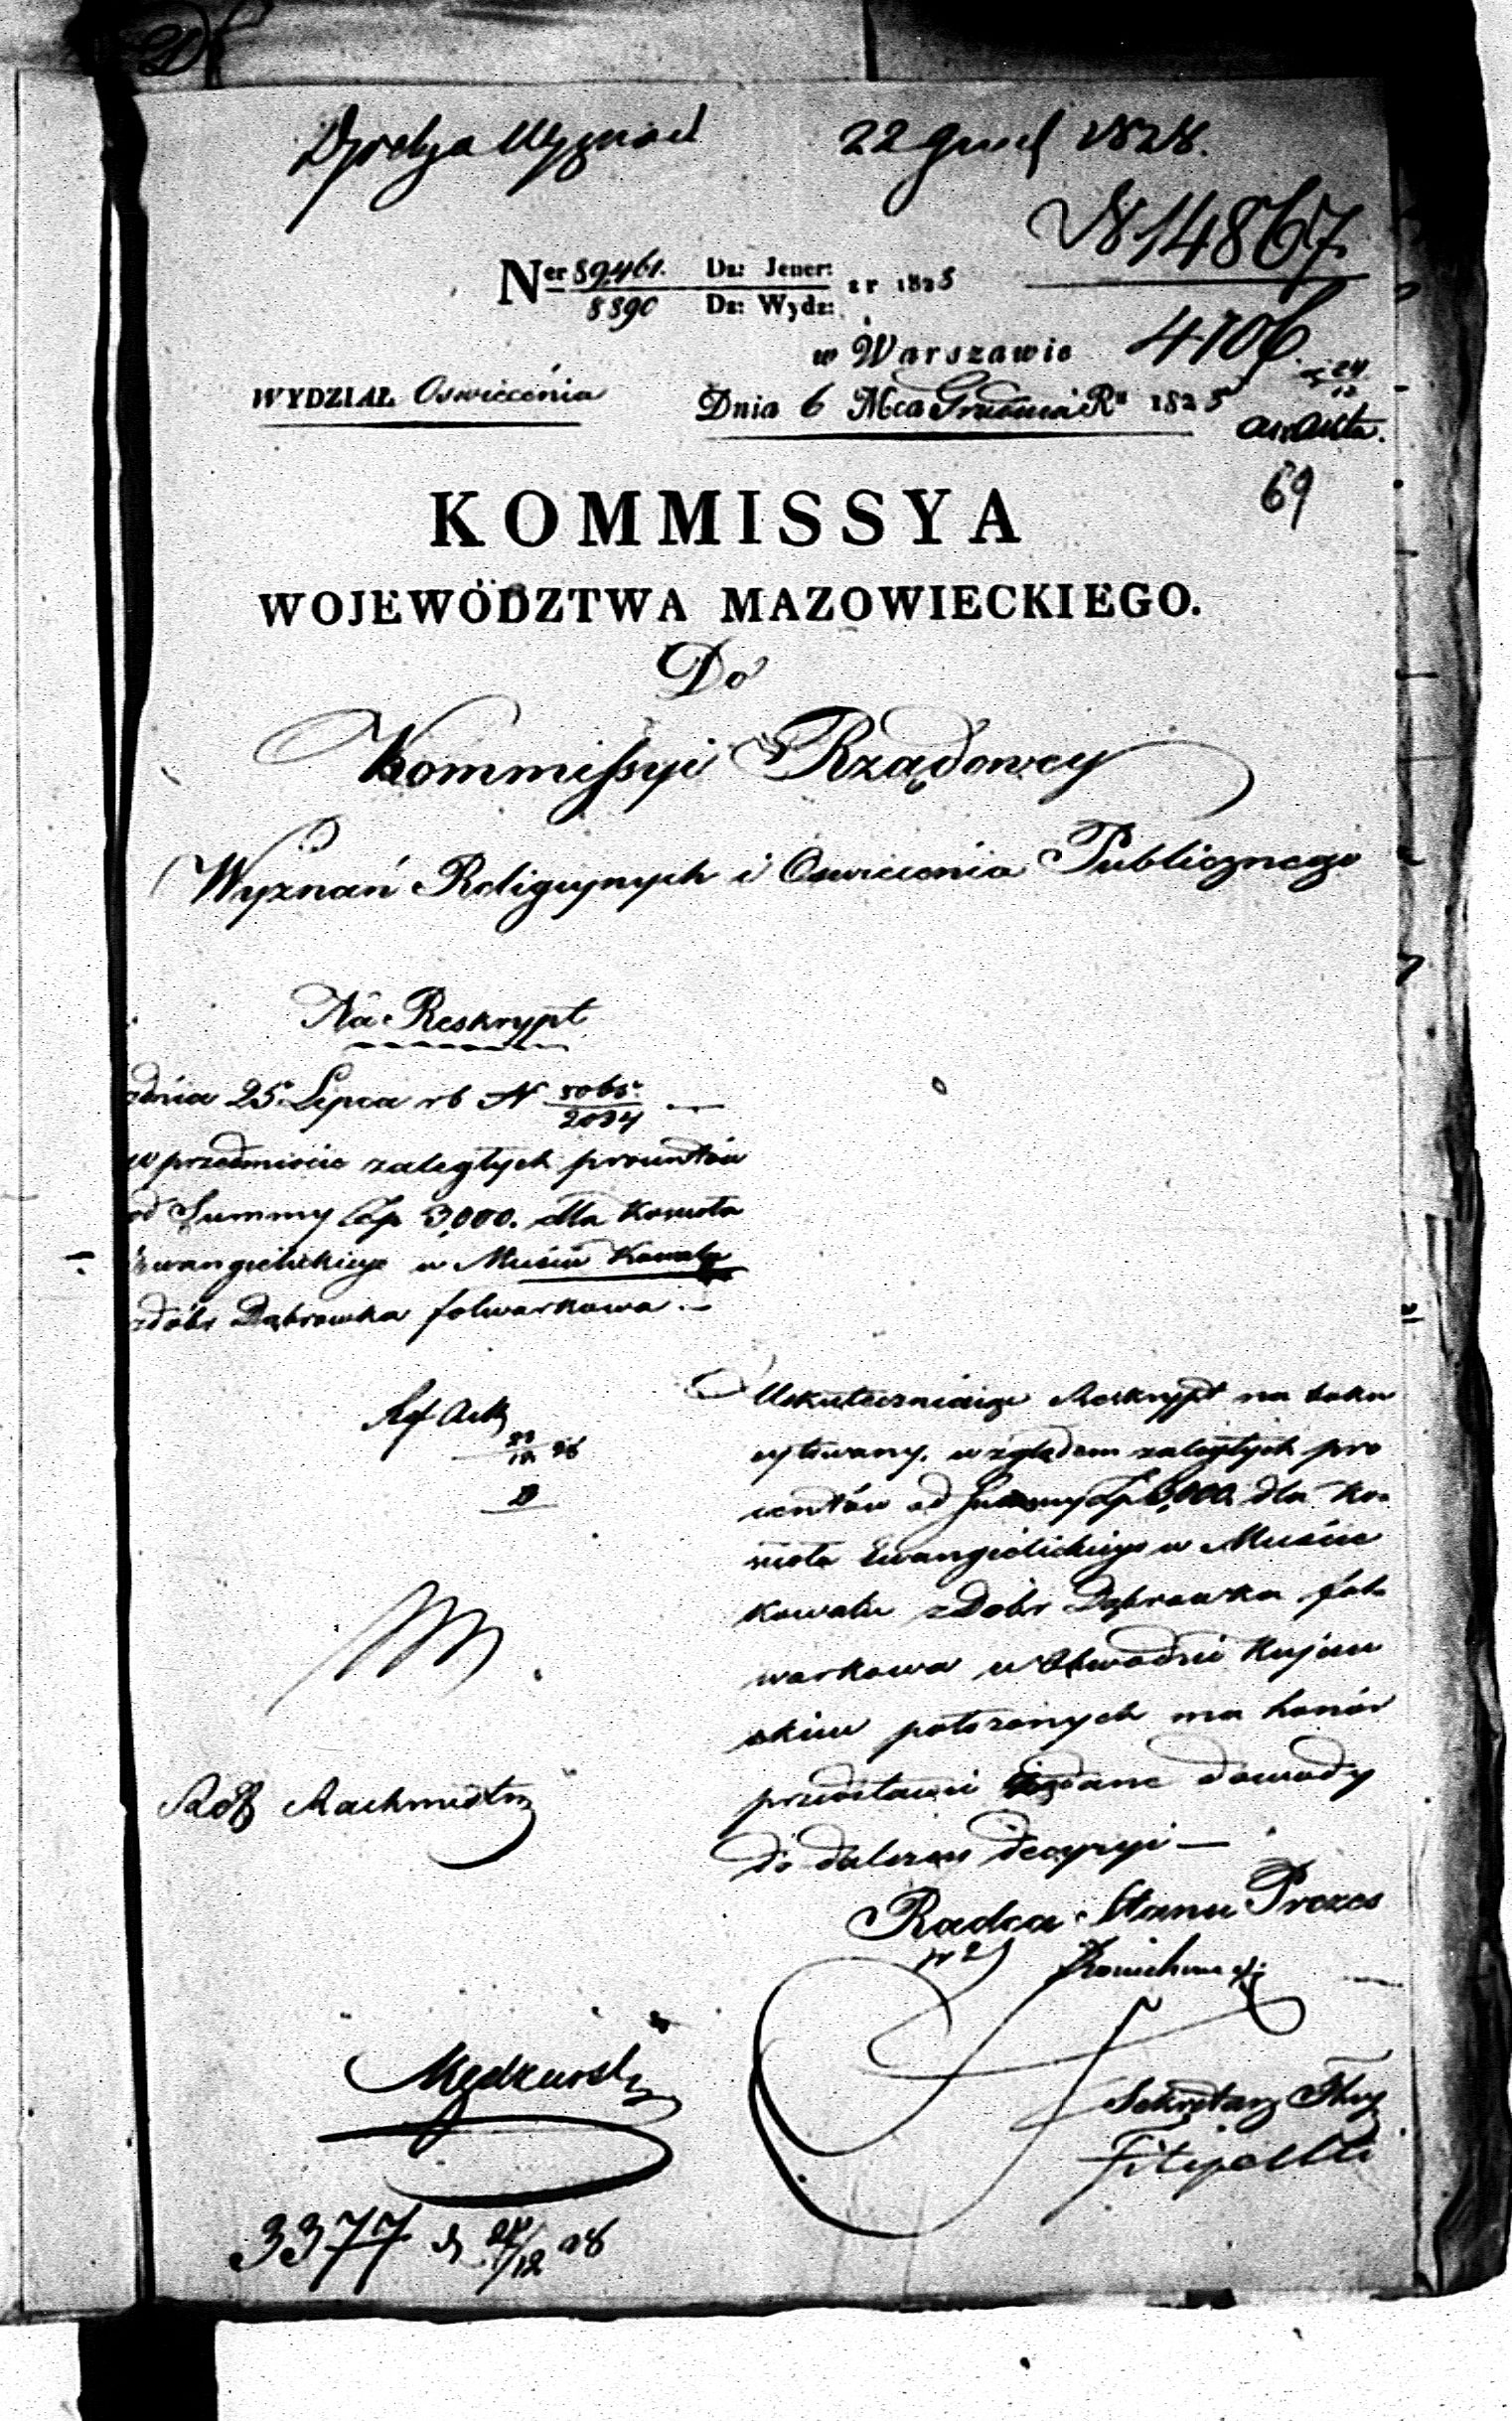 22 Grud 1828.
N 14867
Ner 89,461. Dz: Jener: z r 1828
8890 Dz: Wydz:
w Warszawie 4106
WYDZIAŁ Oswiecenia Dnia 6 Mca Grudnia Ru 1828
ad Acta.
69
KOMMISSYA
WOJEWÓDZTWA MAZOWIECKIEGO.
Do
Kommissyi Rządowey
Wyznań Religiynych i Oswiecenia Publicznego
Na Reskrypt
zdnia 25 Lipca rb N
w przedmiocie zaległych procentów
od Summy Złp 3,000. dla Kościoła
Ewangielickiego w Mieście Kowalu
zdóbr Dąbrowka folwarkowa.—
Uskuteczniaiąc Reskrypt na boku
cytowany, względem zaległych pro
centów od Summy Złp 3,000 dla Ko-
ścioła Ewangielickiego w Mieście
Kowalu z Dóbr Dąbrowka fol-
warkowa w Obwodzie Kujaw
skim położonych ma honór
przedstawić żądane dowody
do dalszey decyzyi—
Radca Stanu Prezes
Sekretarz
3377 d 24/12 28